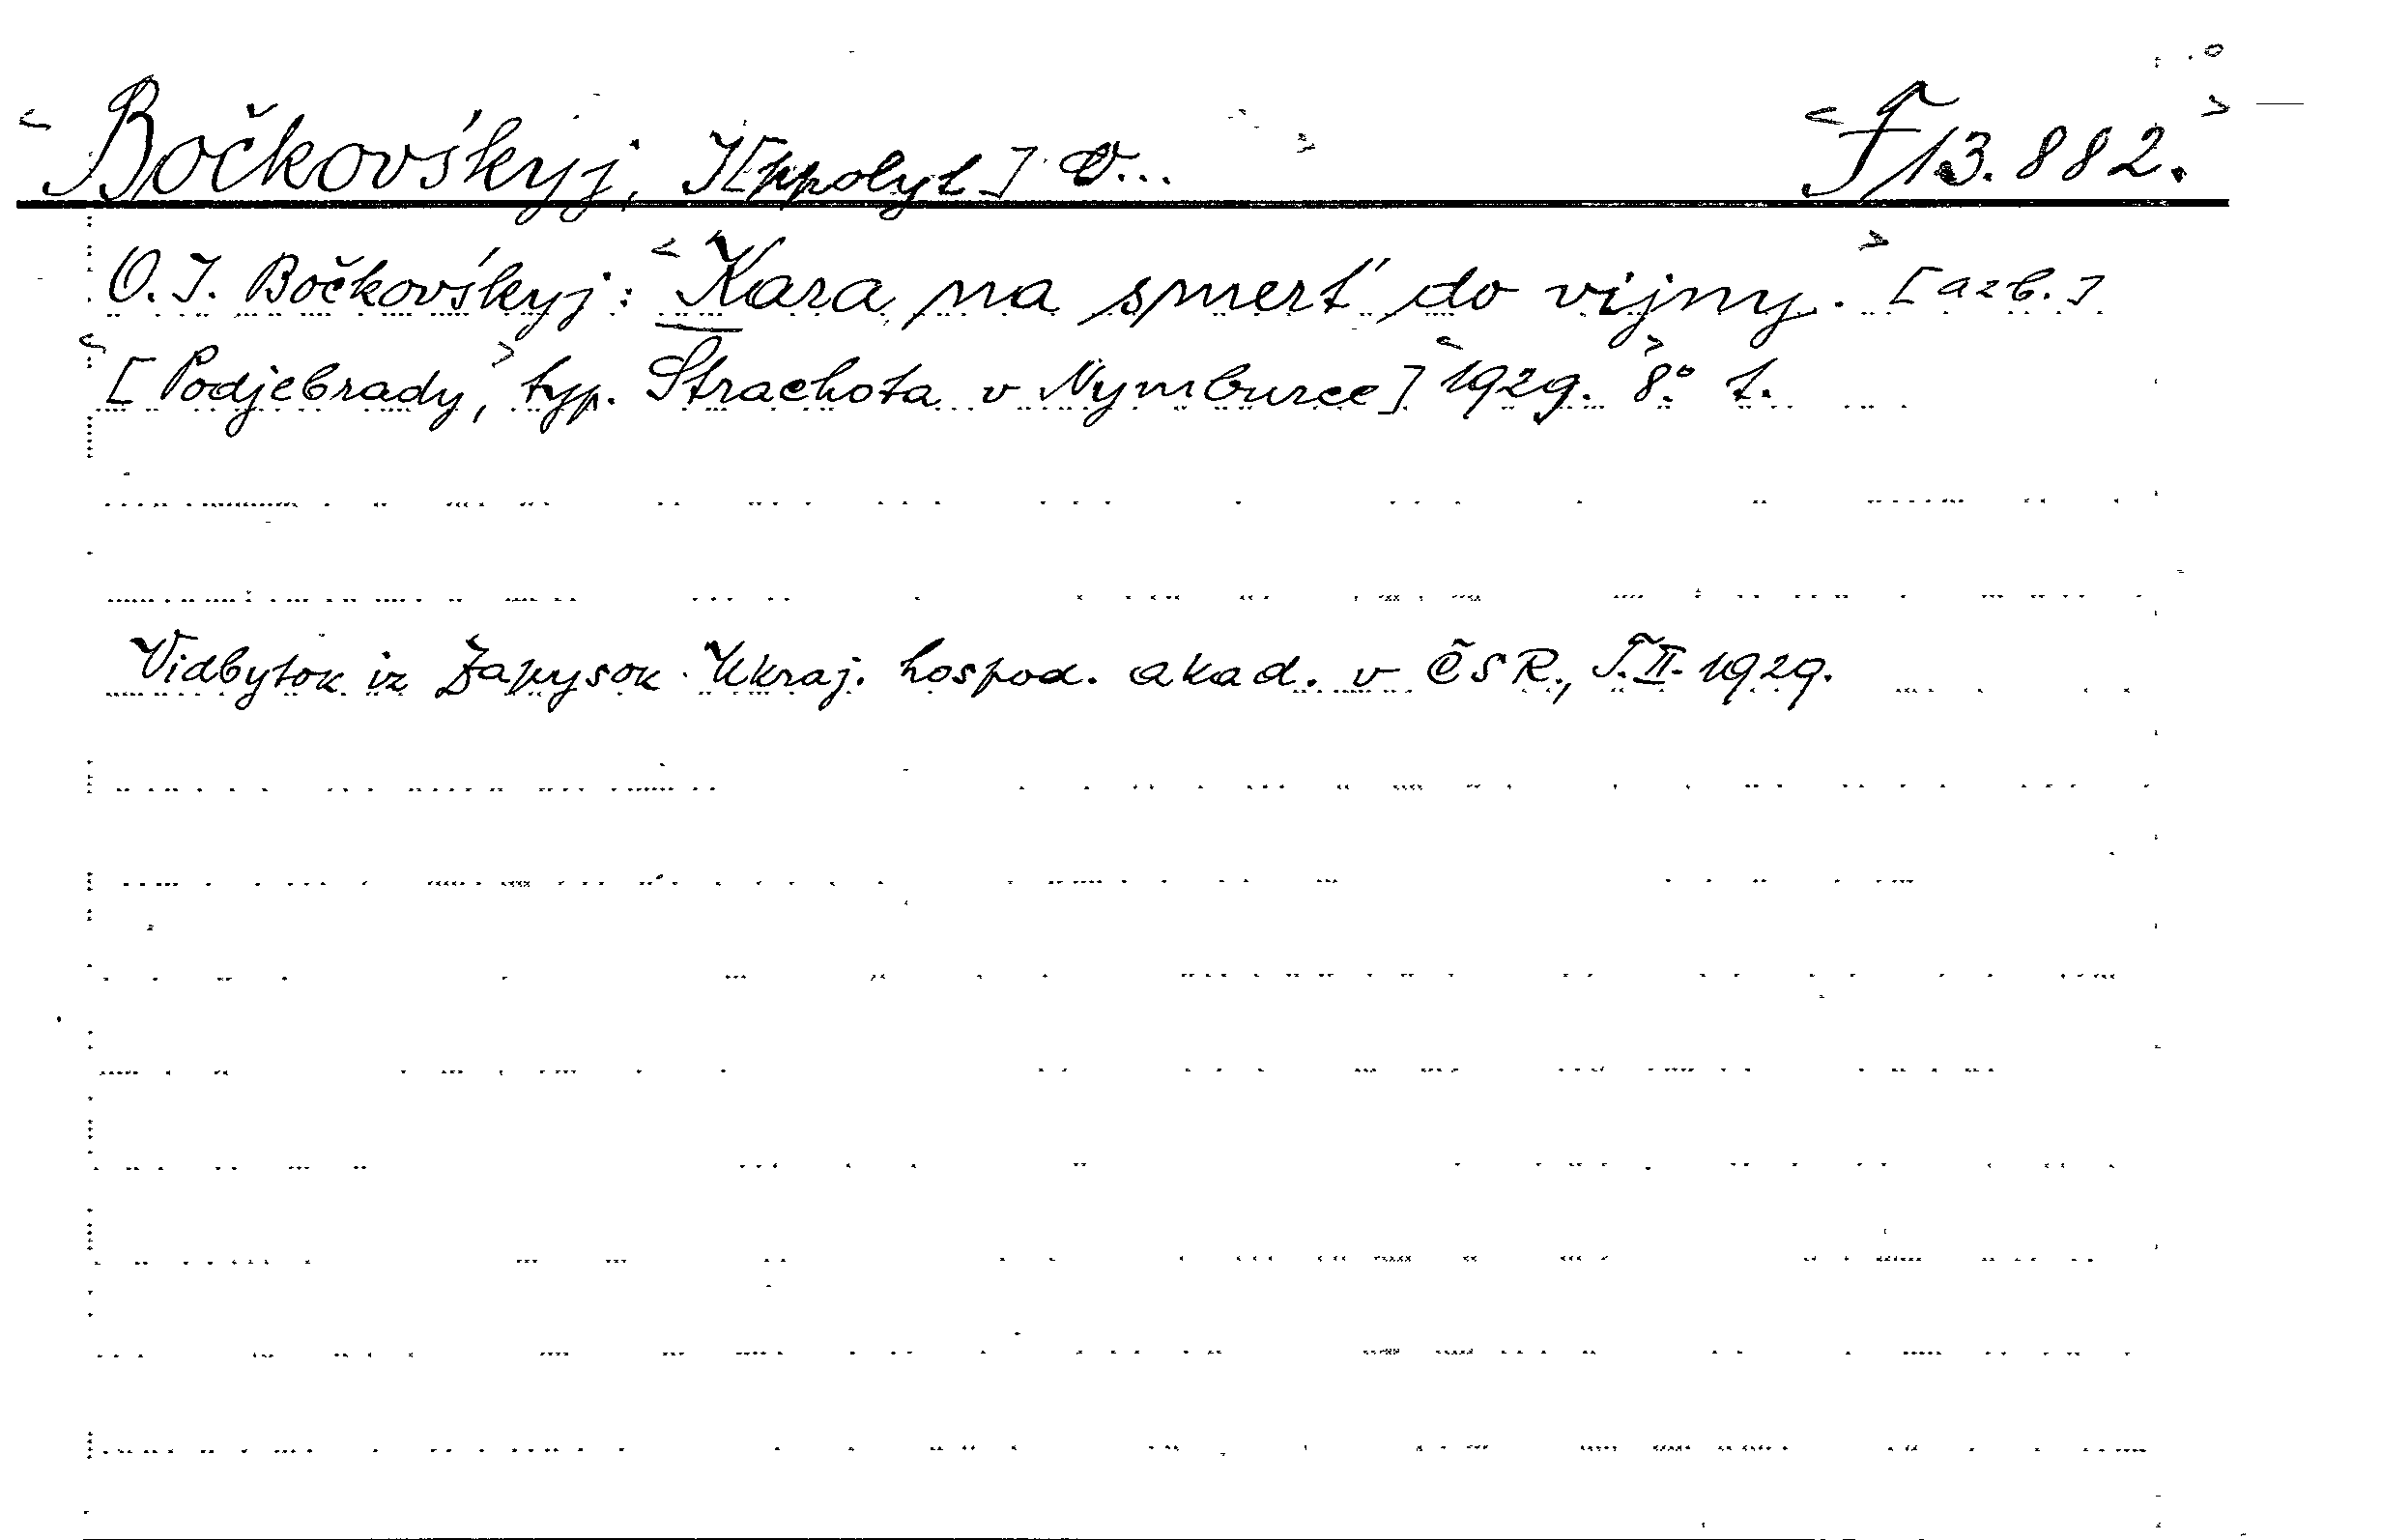 <Bočkovśkyj, I[ppolyt] O... > <F 13.882.>
O. I. Bočkovśkyj: <Kara na smerť do vijny.> [azb.]
<[Podjebrady,> typ. Strachota v Nymburce] <1929. >8° t.
Vidbytok iz Zapysok Ukraj. hospod. akad. v ČSR., T. II. 1929.